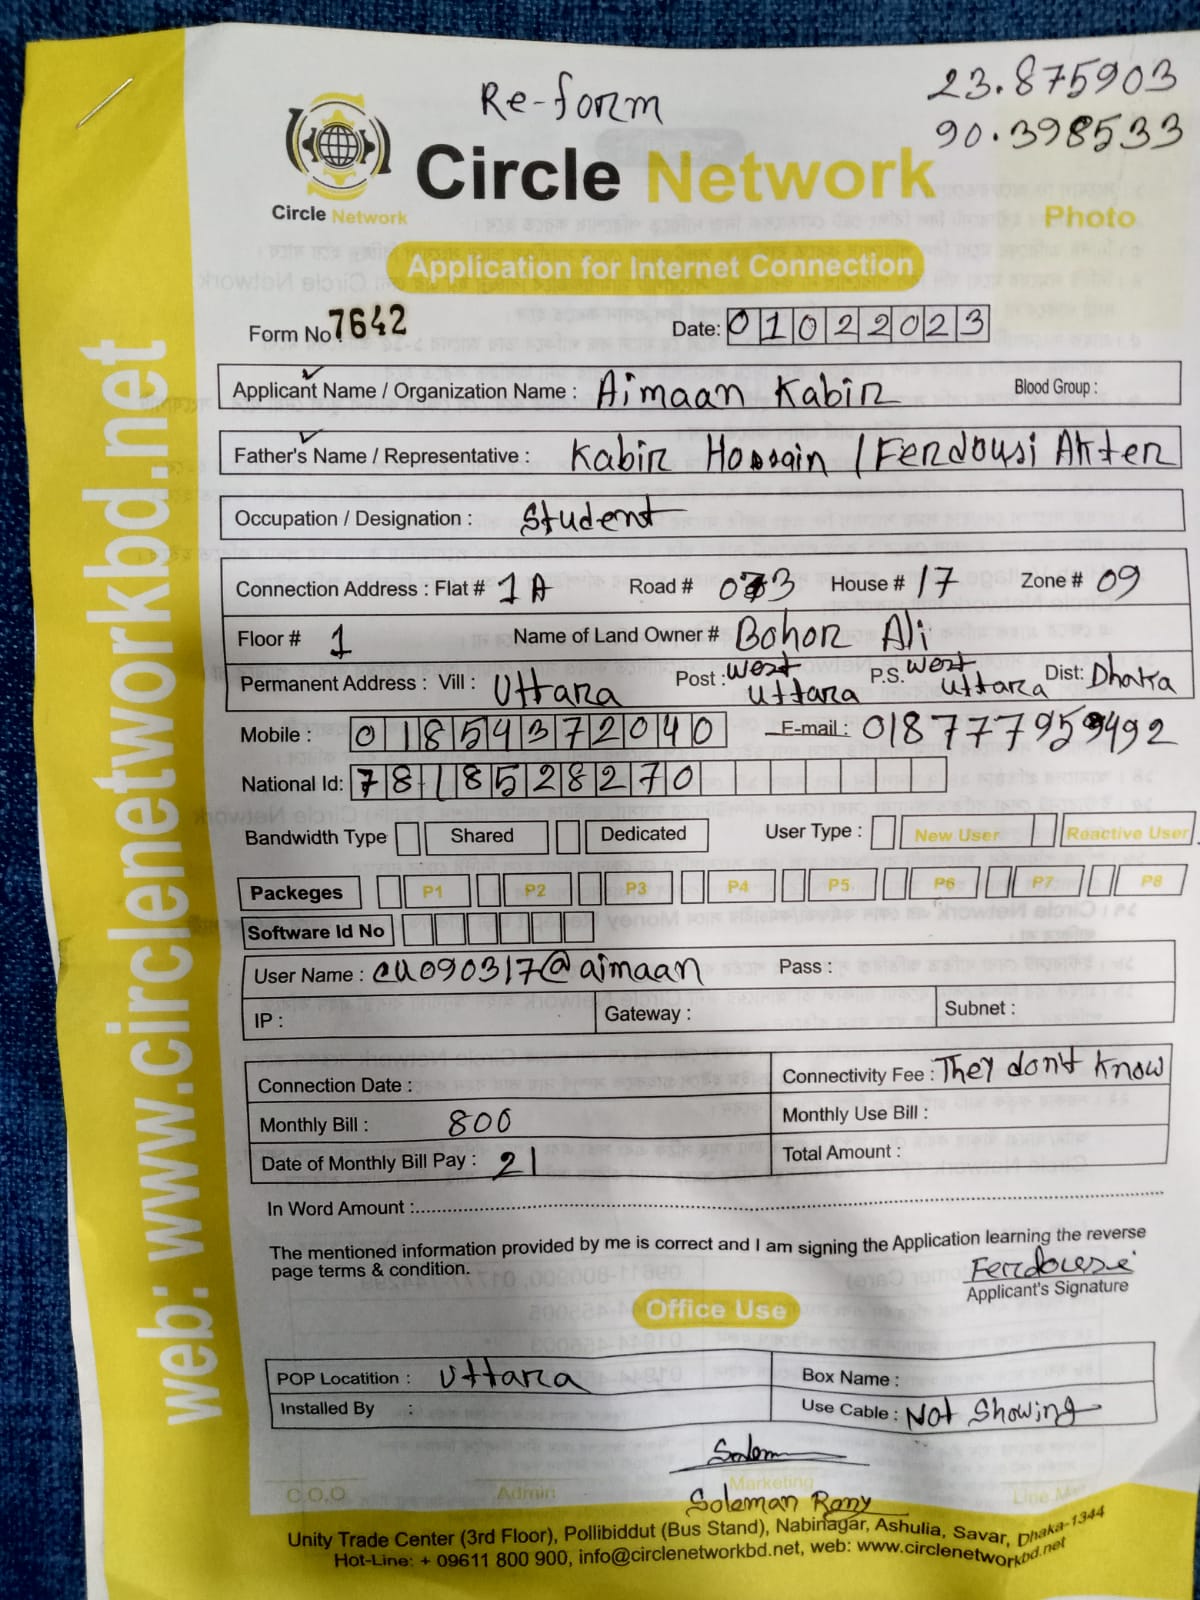 Re-form
23.875903
90.398533
Circle Network
Circle Network
Photo
Application for Internet Connection
Form No 7642
Date: 01022023
Applicant Name / Organization Name : Aimaan Kabir Blood Group :
Father's Name / Representative : Kabir Hossain / Ferdousi Akter
Occupation / Designation : Student
Connection Address : Flat # 1A Road # 03 House # 17 Zone # 09
Floor # 1 Name of Land Owner # Bohor Ali
Permanent Address : Vill : Uttara Post : West Uttara P.S. West Uttara Dist: Dhaka
Mobile : 01854372040 E-mail : 018777959492
National Id: 7818528270
Bandwidth Type Shared Dedicated User Type : New User Reactive User
Packeges P1 P2 P3 P4 P5 P6 P7 P8
Software Id No
User Name : cu090317@aimaan Pass :
IP : Gateway : Subnet :
Connection Date : Connectivity Fee : They don't know
Monthly Bill : 800 Monthly Use Bill :
Date of Monthly Bill Pay : 21 Total Amount :
In Word Amount :
The mentioned information provided by me is correct and I am signing the Application learning the reverse
page terms & condition.
Ferdousi
Applicant's Signature
Office Use
POP Locatition : Uttara Box Name :
Installed By : Use Cable : Not Showing
C.O,O Admin Marketing
Soleman Rony
Unity Trade Center (3rd Floor), Pollibiddut (Bus Stand), Nabinagar, Ashulia, Savar, Dhaka-1344
Hot-Line: + 09611 800 900, info@circlenetworkbd.net, web: www.circlenetworkbd.net
web: www.circlenetworkbd.net